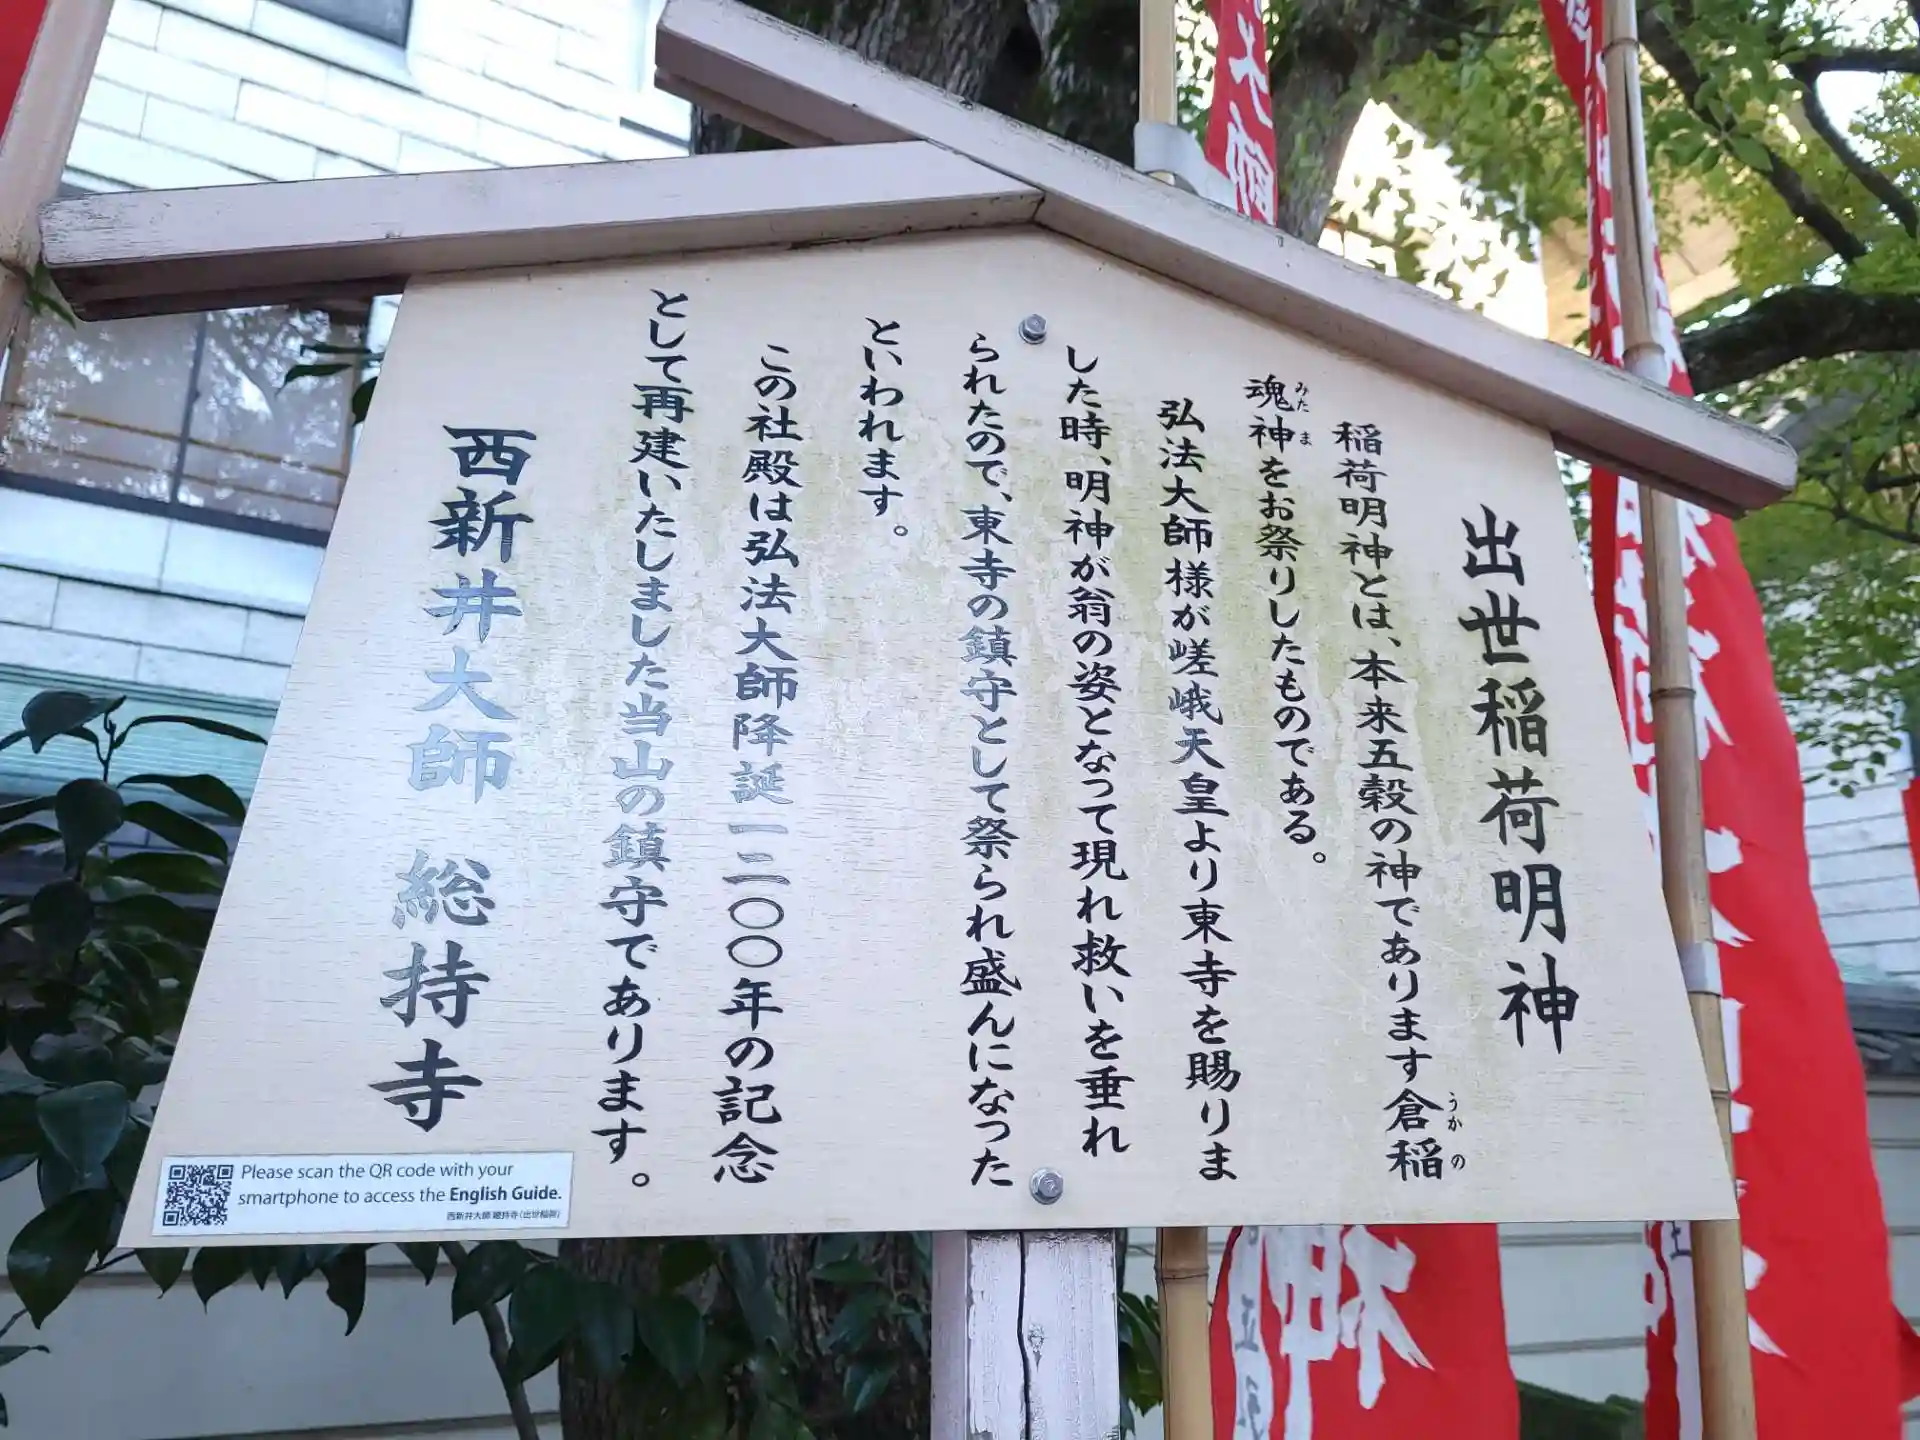 出世稲荷明神
稲荷明神とは、本来五穀の神であります倉稲
うか の
魂神をお祭りしたものである。
みたま
弘法大師様が嵯峨天皇より東寺を賜りま
した時、明神が翁の姿となって現れ救いを垂れ
られたので、東寺の鎮守として祭られ盛んになった
といわれます。
この社殿は弘法大師降誕一二〇〇年の記念
として再建いたしました当山の鎮守であります。
西新井大師 総持寺
Please scan the QR code with your
smartphone to access the English Guide.
西新井大師 總持寺（出世稲荷）